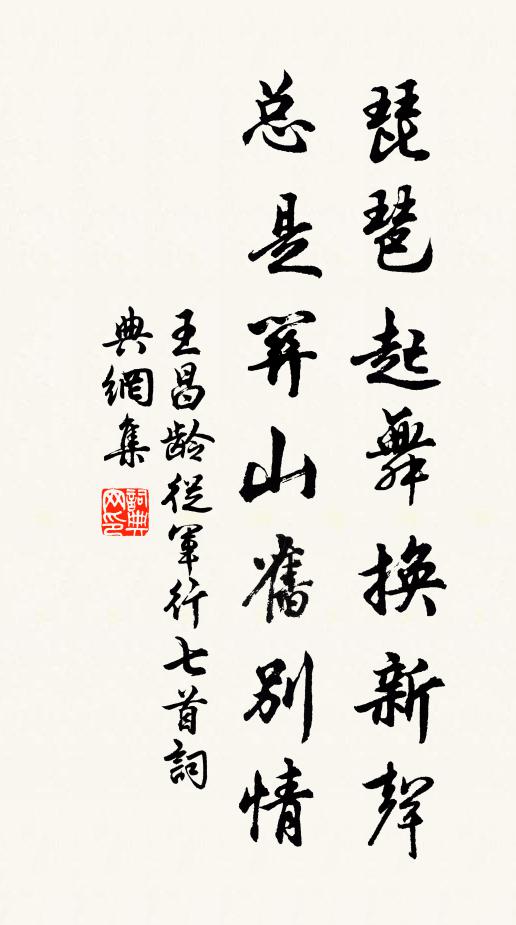 琵琶起舞換新聲
总是關山舊別情
王昌龄從軍行七首詞
典網集
詞典網印